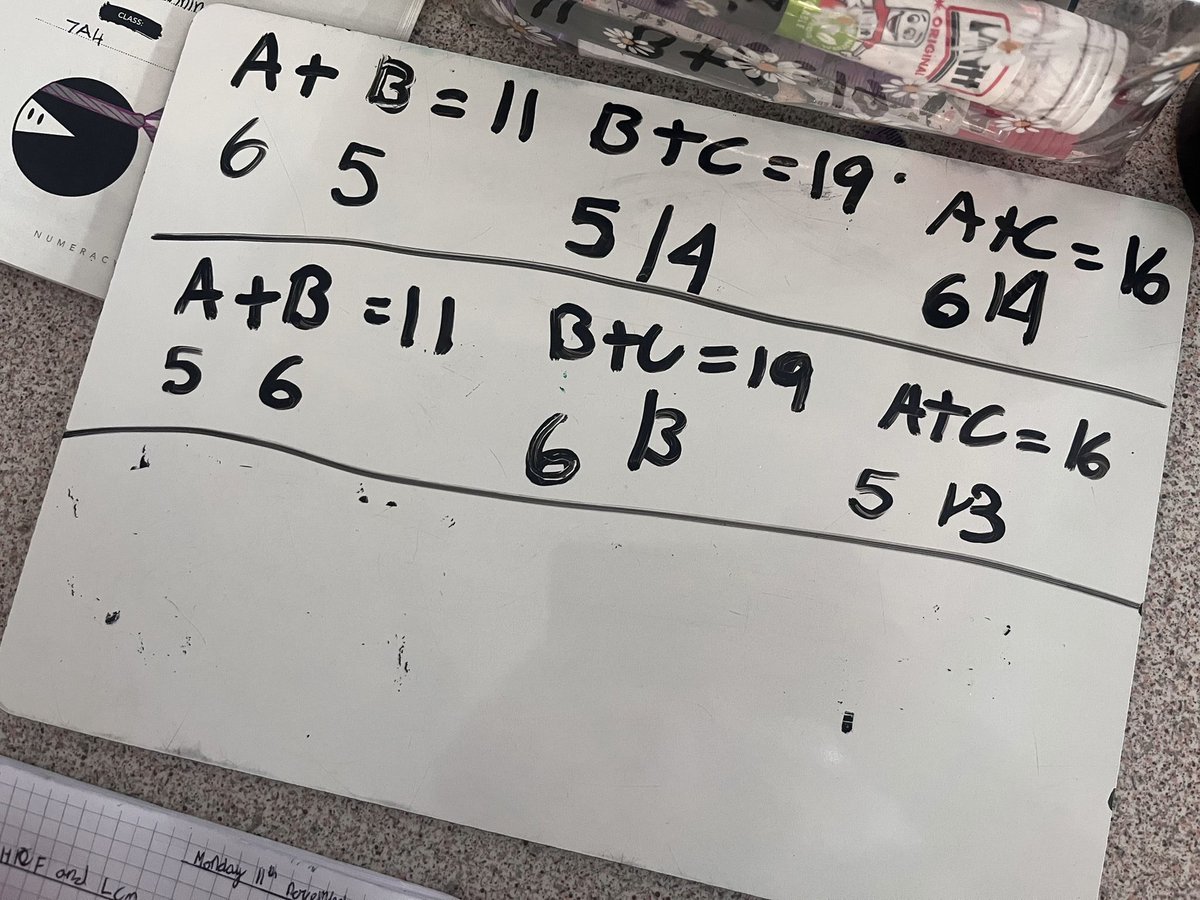 CLASS:
7A4
NUMERAC
ORIGINAL
Pritt
A + B = 11 B+C = 19 . A+C = 16
6 5 5 14 6 14
A + B = 11 B+C = 19 A+C = 16
5 6 6 13 5 13
Monday 11th
HCF and LCM